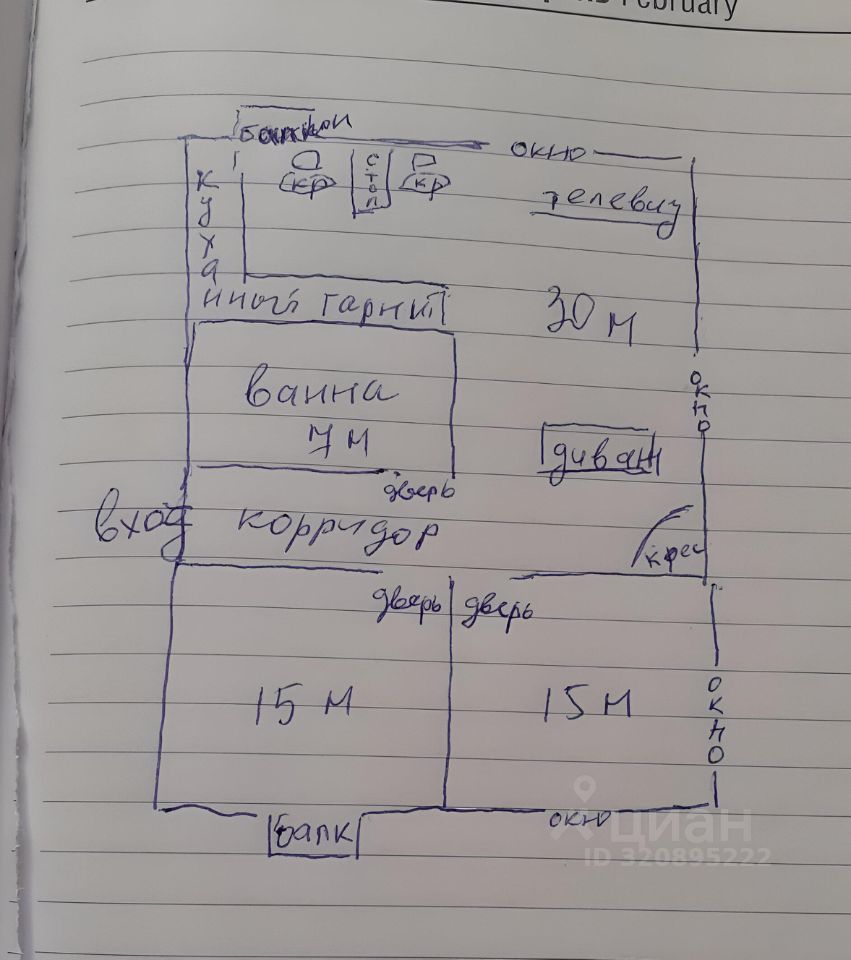 February
балкон
окно
кр
стол
кр
телевиз
куха
нный гарнит
30 м
ванна
7 м
окно
диван
дверь
вход
корридор
крес
дверь
дверь
15 м
15 м
окно
балк
окно
циан
ID 320895222